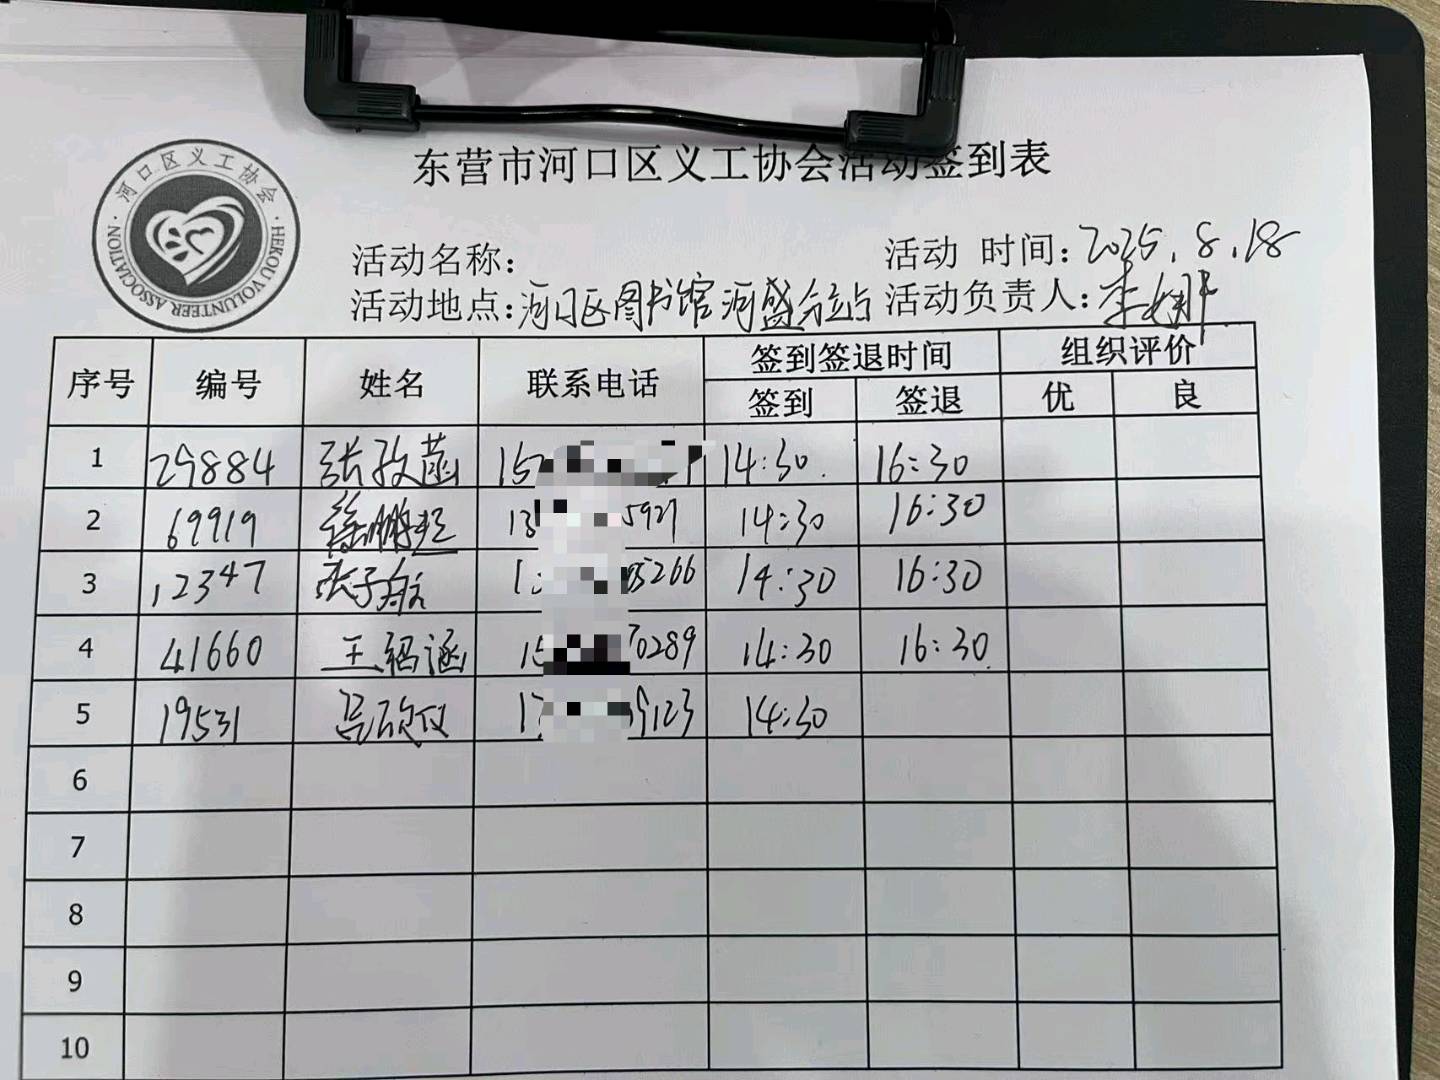 河口区义工协会
HEKOU VOLUNTEER ASSOCIATION
东营市河口区义工协会活动签到表
活动名称：
活动 时间：2025.8.18
活动地点：河口区图书馆河盛分站点
活动负责人：李娜
序号 编号 姓名 联系电话 签到签退时间 组织评价
签到 签退 优 良
1 29884 张孜菡 157 14:30. 16:30
2 69919 徐鹏 13 5927 14:30 16:30
3 12347 张子航 1 5266 14:30 16:30
4 41660 王绍涵 15 70289 14:30 16:30.
5 19531 吕欣仪 17 9123 14:30
6
7
8
9
10